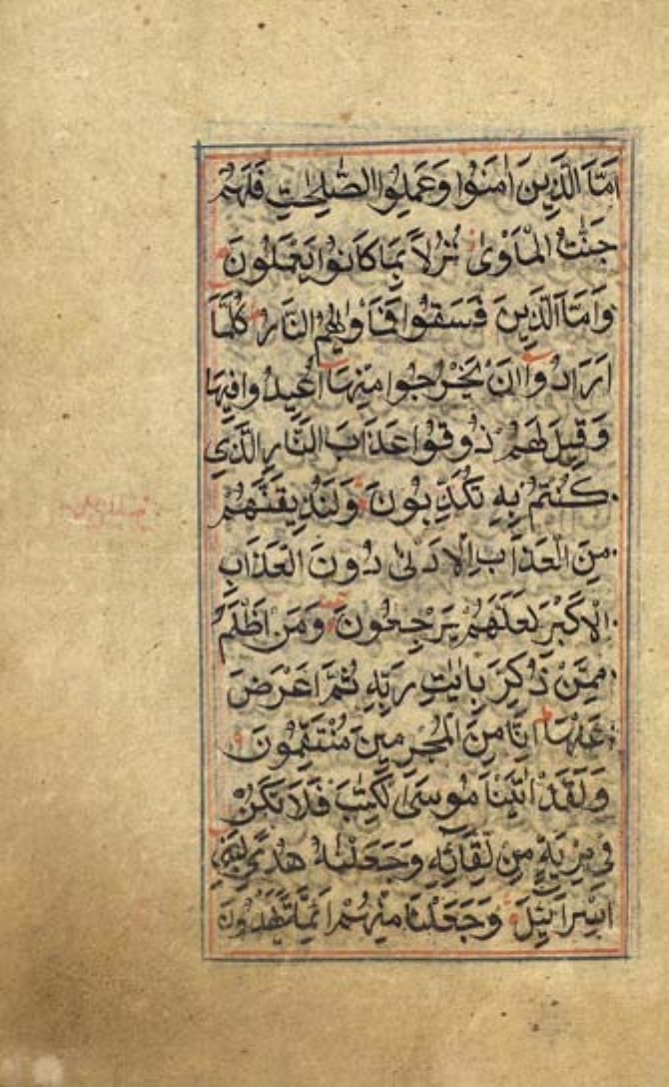 اَمَّا الَّذِينَ اٰمَنُوا وَعَمِلُوا الصّٰلِحٰتِ فَلَهُمْ
جَنّٰتُ الْمَأْوٰى نُزُلًا بِمَا كَانُوا يَعْمَلُونَ
وَاَمَّا الَّذِينَ فَسَقُوا فَمَأْوٰيهُمُ النَّارُ كُلَّمَا
اَرَادُوا اَنْ يَخْرُجُوا مِنْهَا اُعِيدُوا فِيهَا
وَقِيلَ لَهُمْ ذُوقُوا عَذَابَ النَّارِ الَّذِى
كُنْتُمْ بِهٖ تُكَذِّبُونَ وَلَنُذِيقَنَّهُمْ
مِنَ الْعَذَابِ الْاَدْنٰى دُونَ الْعَذَابِ
الْاَكْبَرِ لَعَلَّهُمْ يَرْجِعُونَ وَمَنْ اَظْلَمُ
مِمَّنْ ذُكِّرَ بِاٰيٰتِ رَبِّهٖ ثُمَّ اَعْرَضَ
عَنْهَا اِنَّا مِنَ الْمُجْرِمِينَ مُنْتَقِمُونَ
وَلَقَدْ اٰتَيْنَا مُوسَى الْكِتٰبَ فَلَا تَكُنْ
فِى مِرْيَةٍ مِنْ لِقَائِهٖ وَجَعَلْنٰهُ هُدًى لِبَنِى
اِسْرَائِيلَ وَجَعَلْنَا مِنْهُمْ اَئِمَّةً يَهْدُونَ